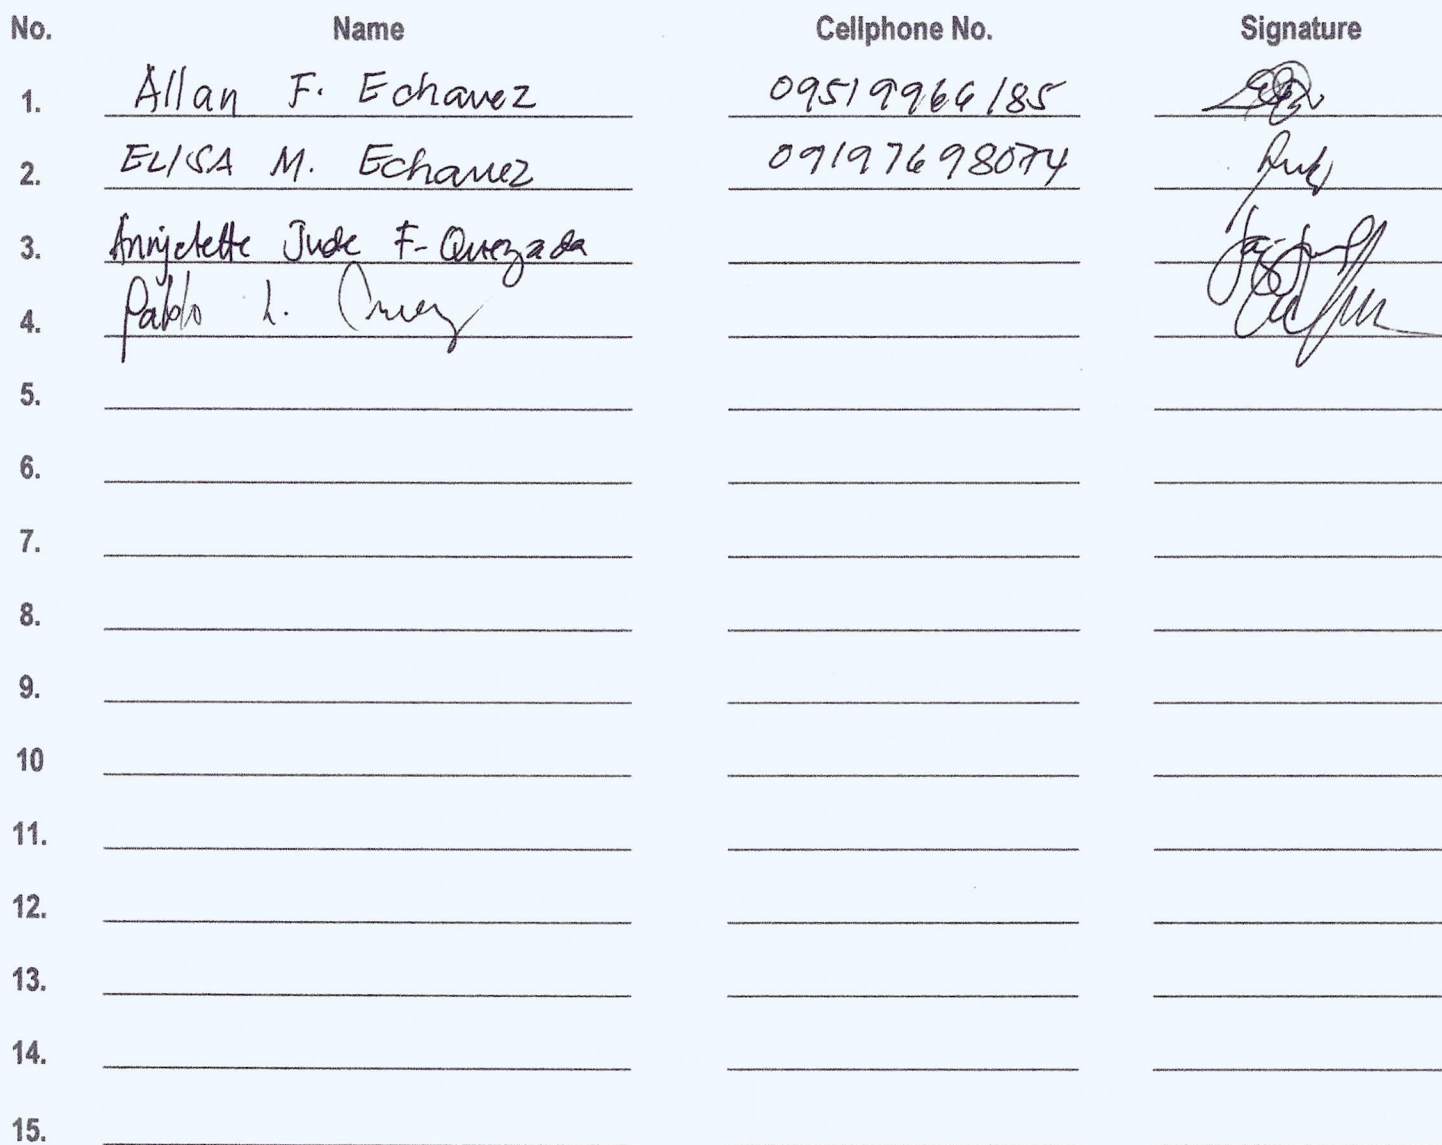 No. Name Cellphone No. Signature
1. Allan F. Echavez 09519966185
2. ELISA M. Echavez 09197698074
3. Jude F. Quezada
4. Pablo L. Cruz
5.
6.
7.
8.
9.
10
11.
12.
13.
14.
15.